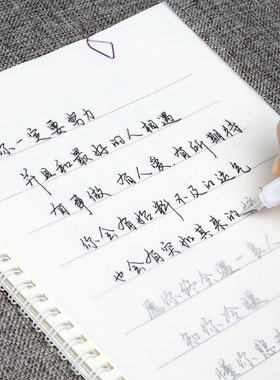 你一定要努力
并且和最好的人相遇
有事做 有人爱 有所期待
你会有始料不及的运气
也会有突如其来的
愿你能会遇一
知你冷暖
懂你悲